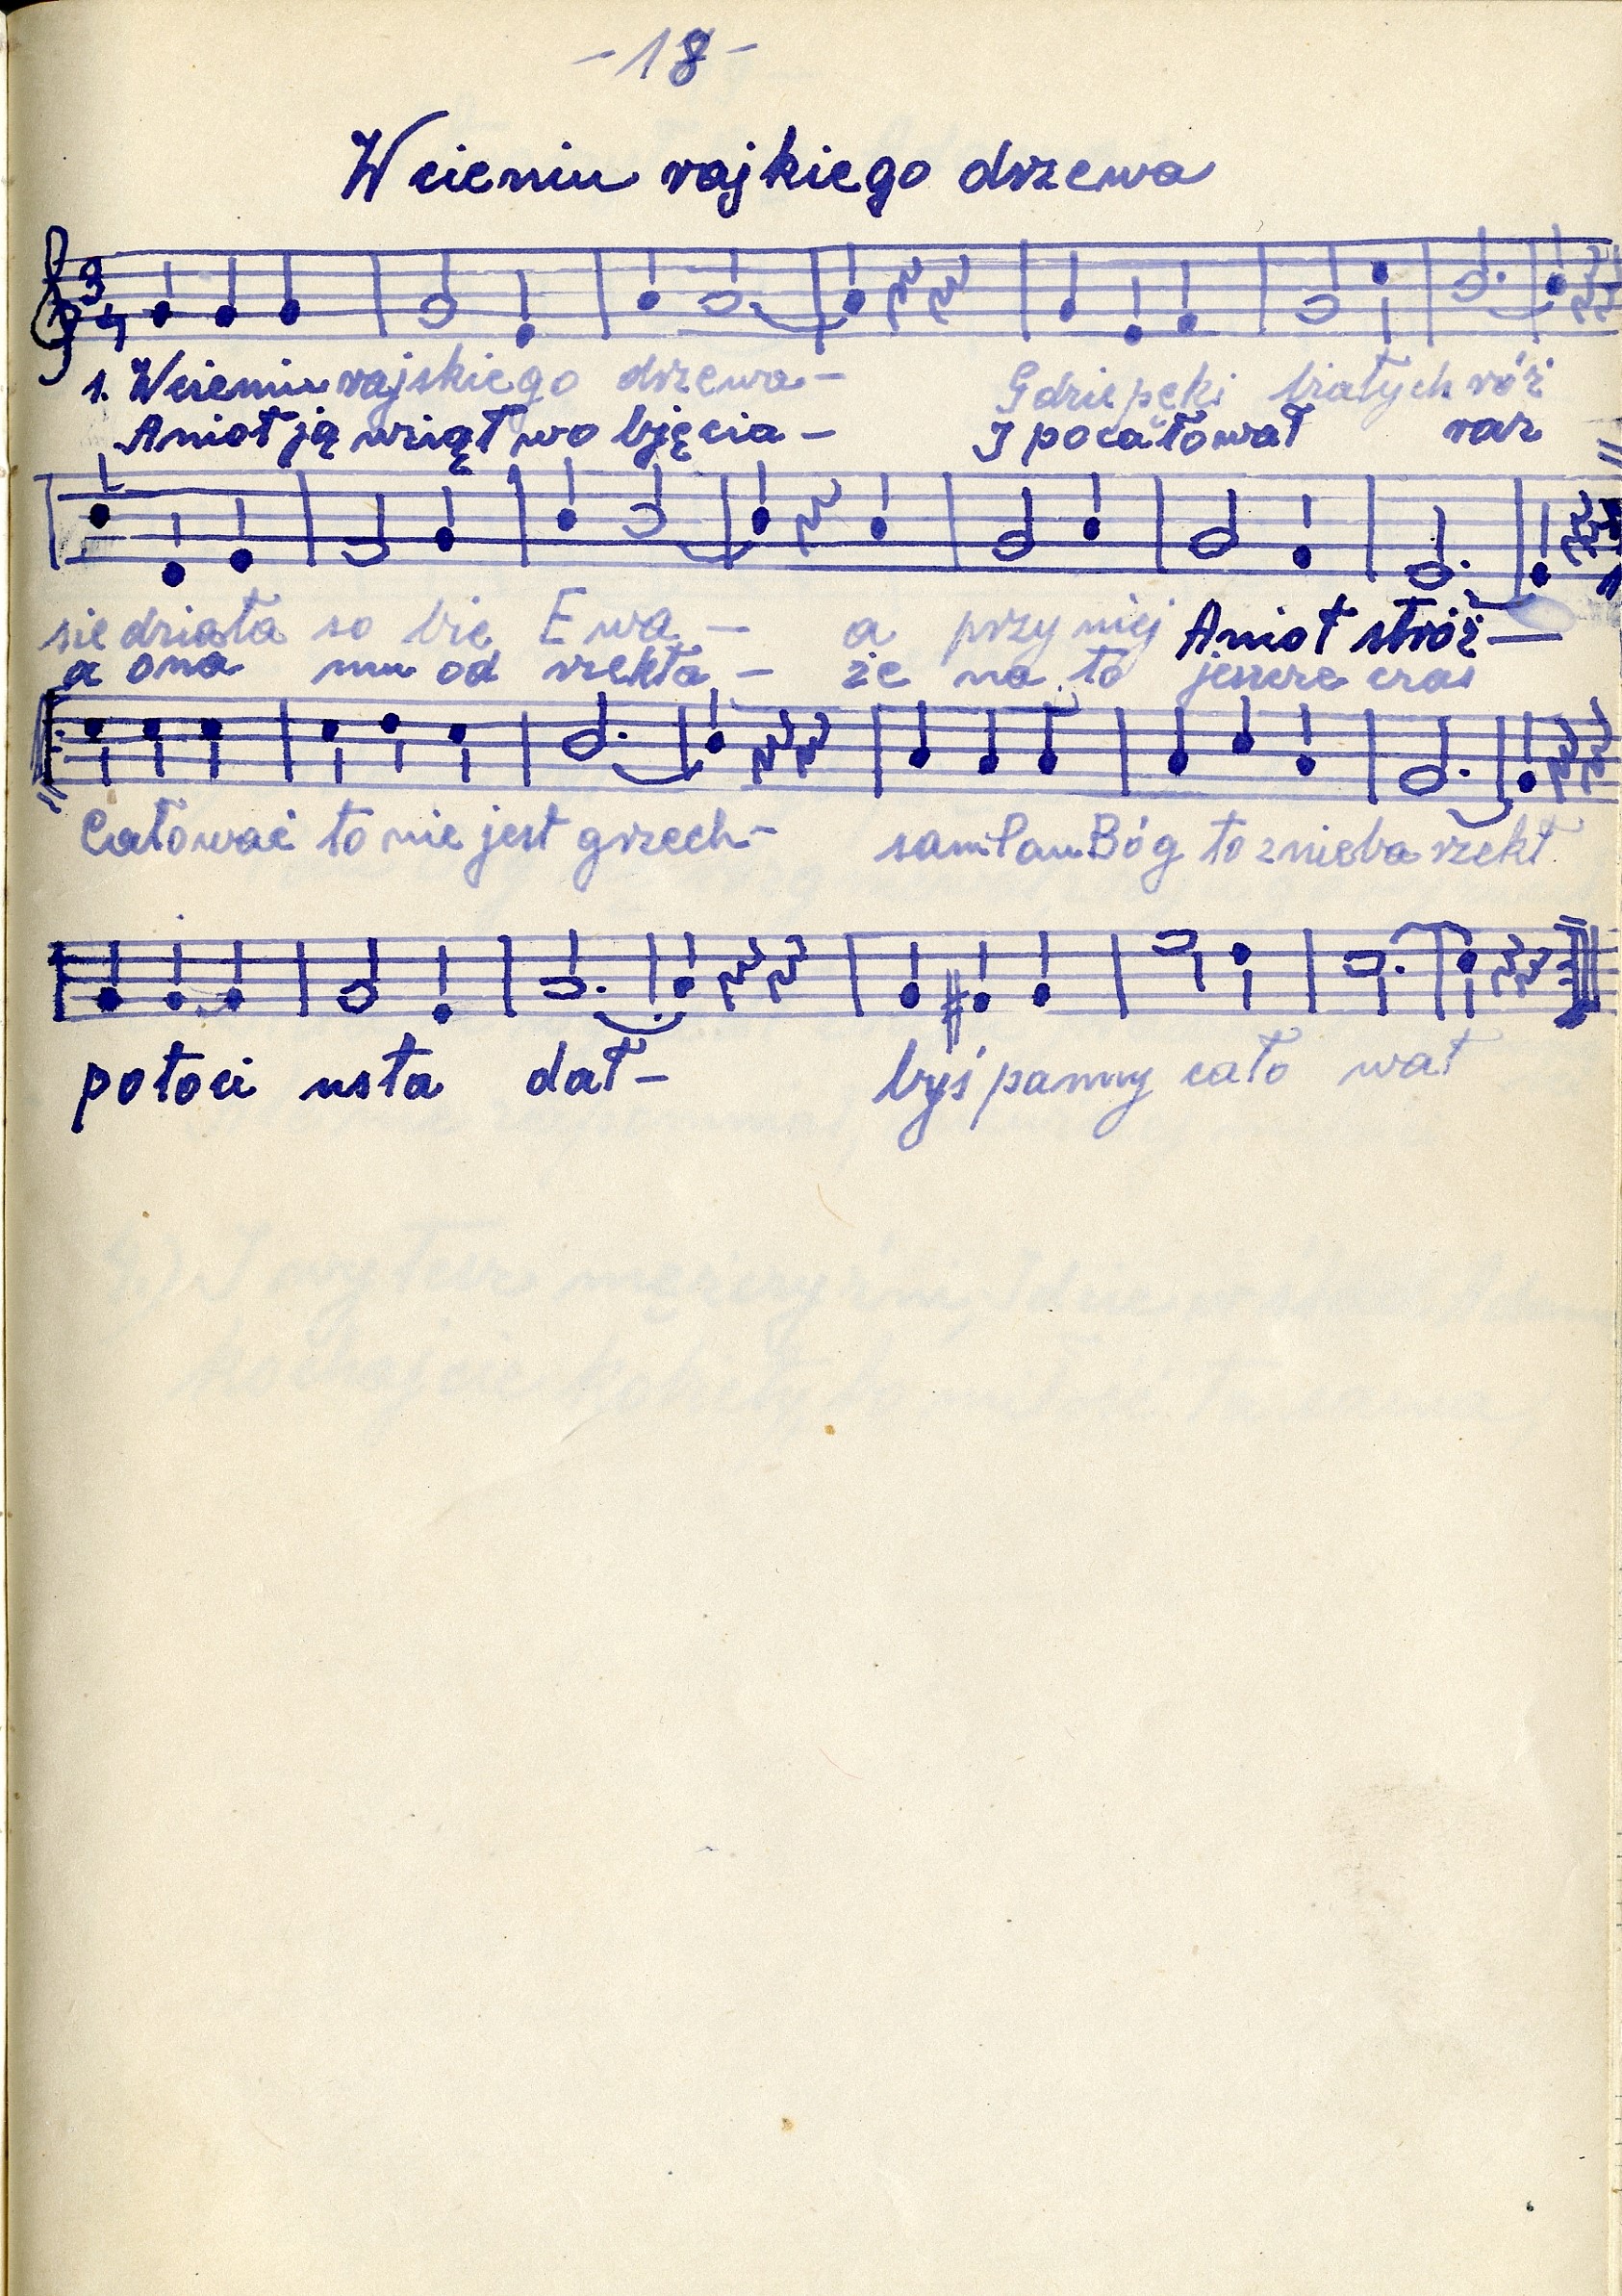 - 18 -
W cieniu rajkiego drzewa
3
4
1. W cieniu rajskiego drzewa - Gdzie pęki białych róż
Anioł ją wziął w o bjęcia - I pocałował raz
sie działa so bie E wa - a przy niej Anioł stróż -
a ona mu od rzekła - że na to jeszcze czas
Całować to nie jest grzech - sam Pan Bóg to z nieba rzekł
poto ci usta dał - byś panny cało wał